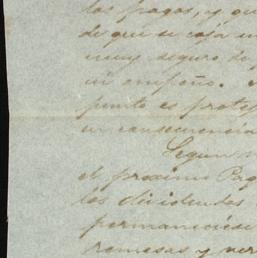 los pagos, y que
de que se coja un
muy seguro de
un empeño.
punto es protes
un consecuencia
Segun
el proximo Pag
los dividendos
permanecies
remesas y ver